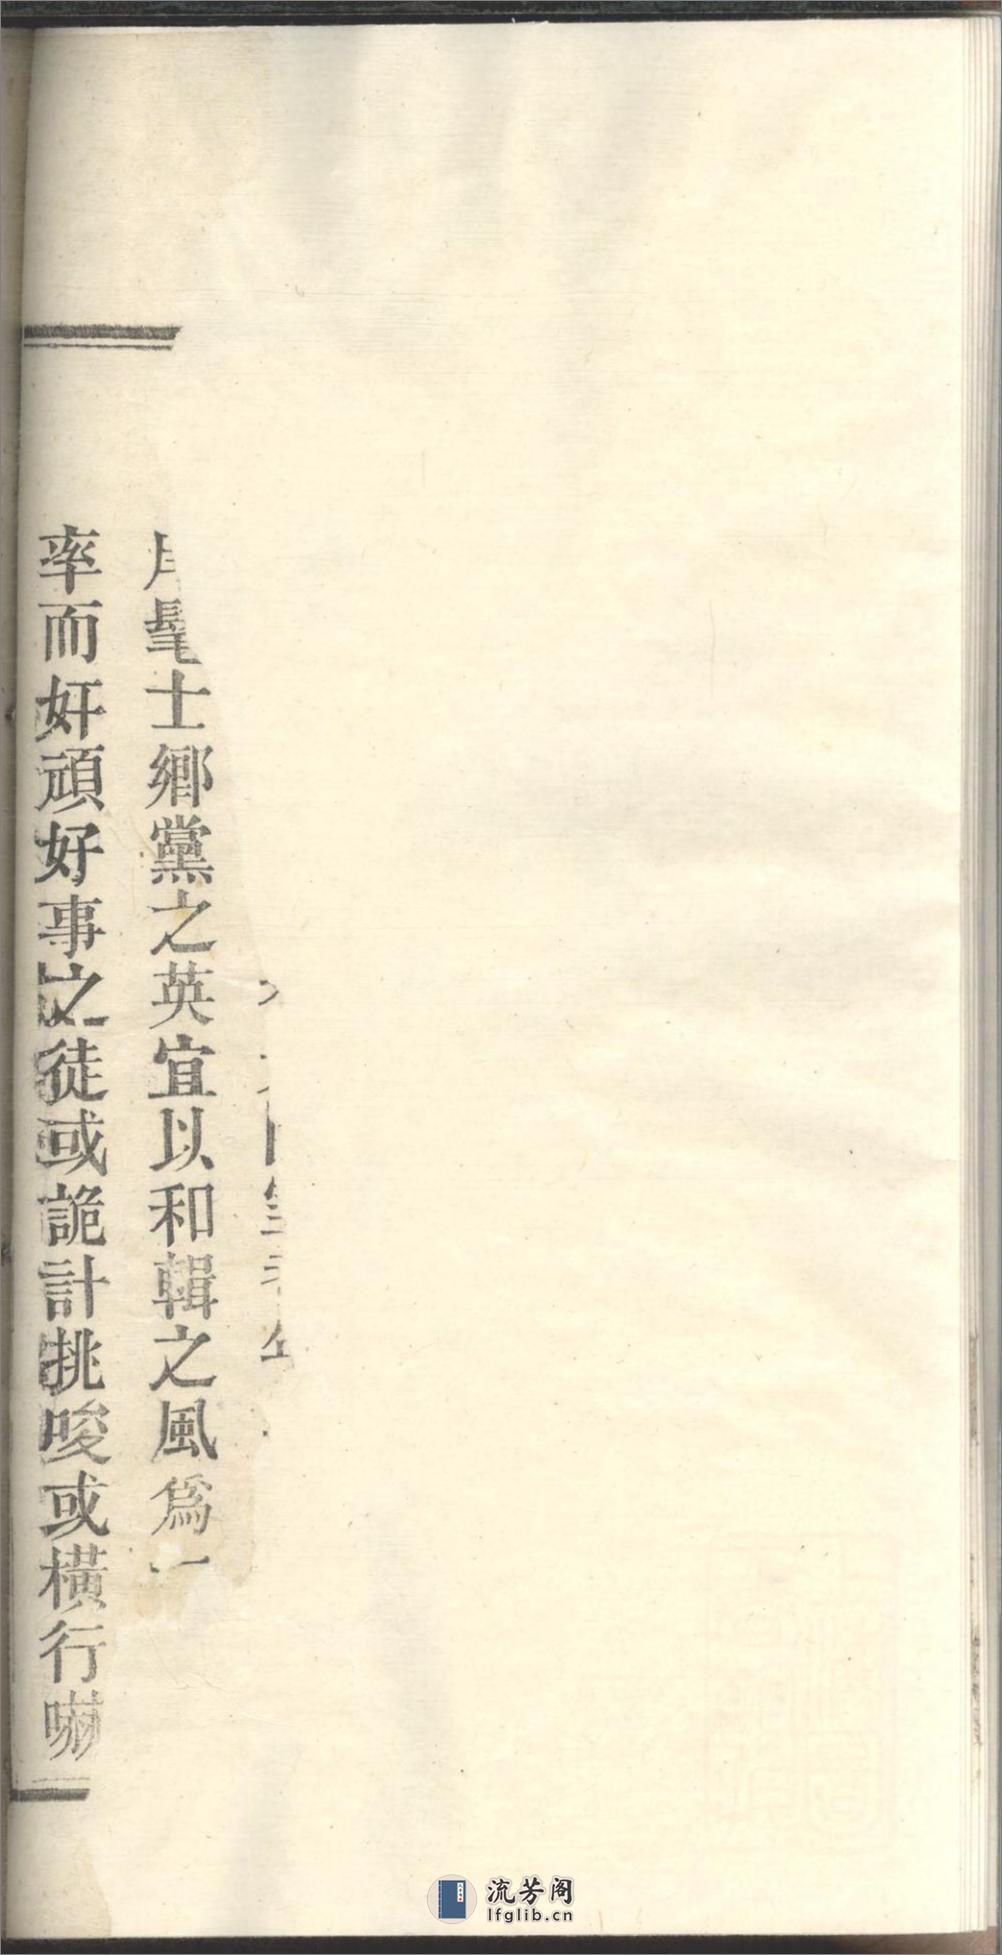 髦士鄉黨之英宜以和輯之風爲一
率而奸頑好事之徒或詭計挑唆或橫行嚇
流芳阁
lfglib.cn